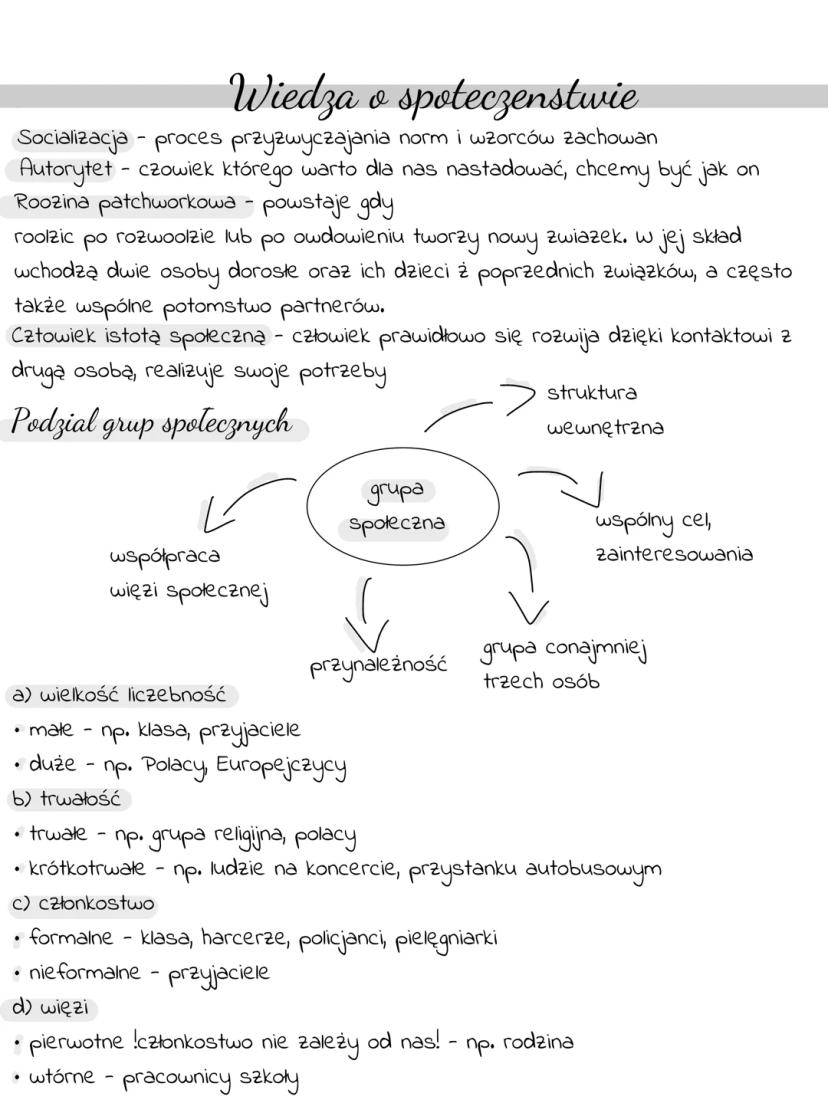 Wiedza o społeczenstwie
Socializacja - proces przyzwyczajania norm i wzorców zachowan
Autorytet - czowiek którego warto dla nas nastadować, chcemy być jak on
Roozina patchworkowa - powstaje gdy
roolzic po rozwoolzie lub po owdowieniu tworzy nowy zwiazek. w jej skład
wchodzą dwie osoby dorosłe oraz ich dzieci ż poprzednich związków, a często
także wspólne potomstwo partnerów.
Cztowiek istotą społeczną - człowiek prawidłowo się rozwija dzięki kontaktowi z
drugą osobą, realizuje swoje potrzeby
Podzial grup społecznych
struktura
wewnętrzna
grupa
społeczna
wspólny cel,
zainteresowania
współpraca
więzi społecznej
przynależność
grupa conajmniej
trzech osób
a) wielkość liczebność
• małe - np. klasa, przyjaciele
• duże - np. Polacy, Europejczycy
b) trwałość
• trwałe - np. grupa religijna, polacy
• krótkotrwałe - np. ludzie na koncercie, przystanku autobusowym
c) członkostwo
• formalne - klasa, harcerze, policjanci, pielęgniarki
• nieformalne - przyjaciele
d) więzi
• pierwotne !członkostwo nie zależy od nas! - np. rodzina
• wtórne - pracownicy szkoły